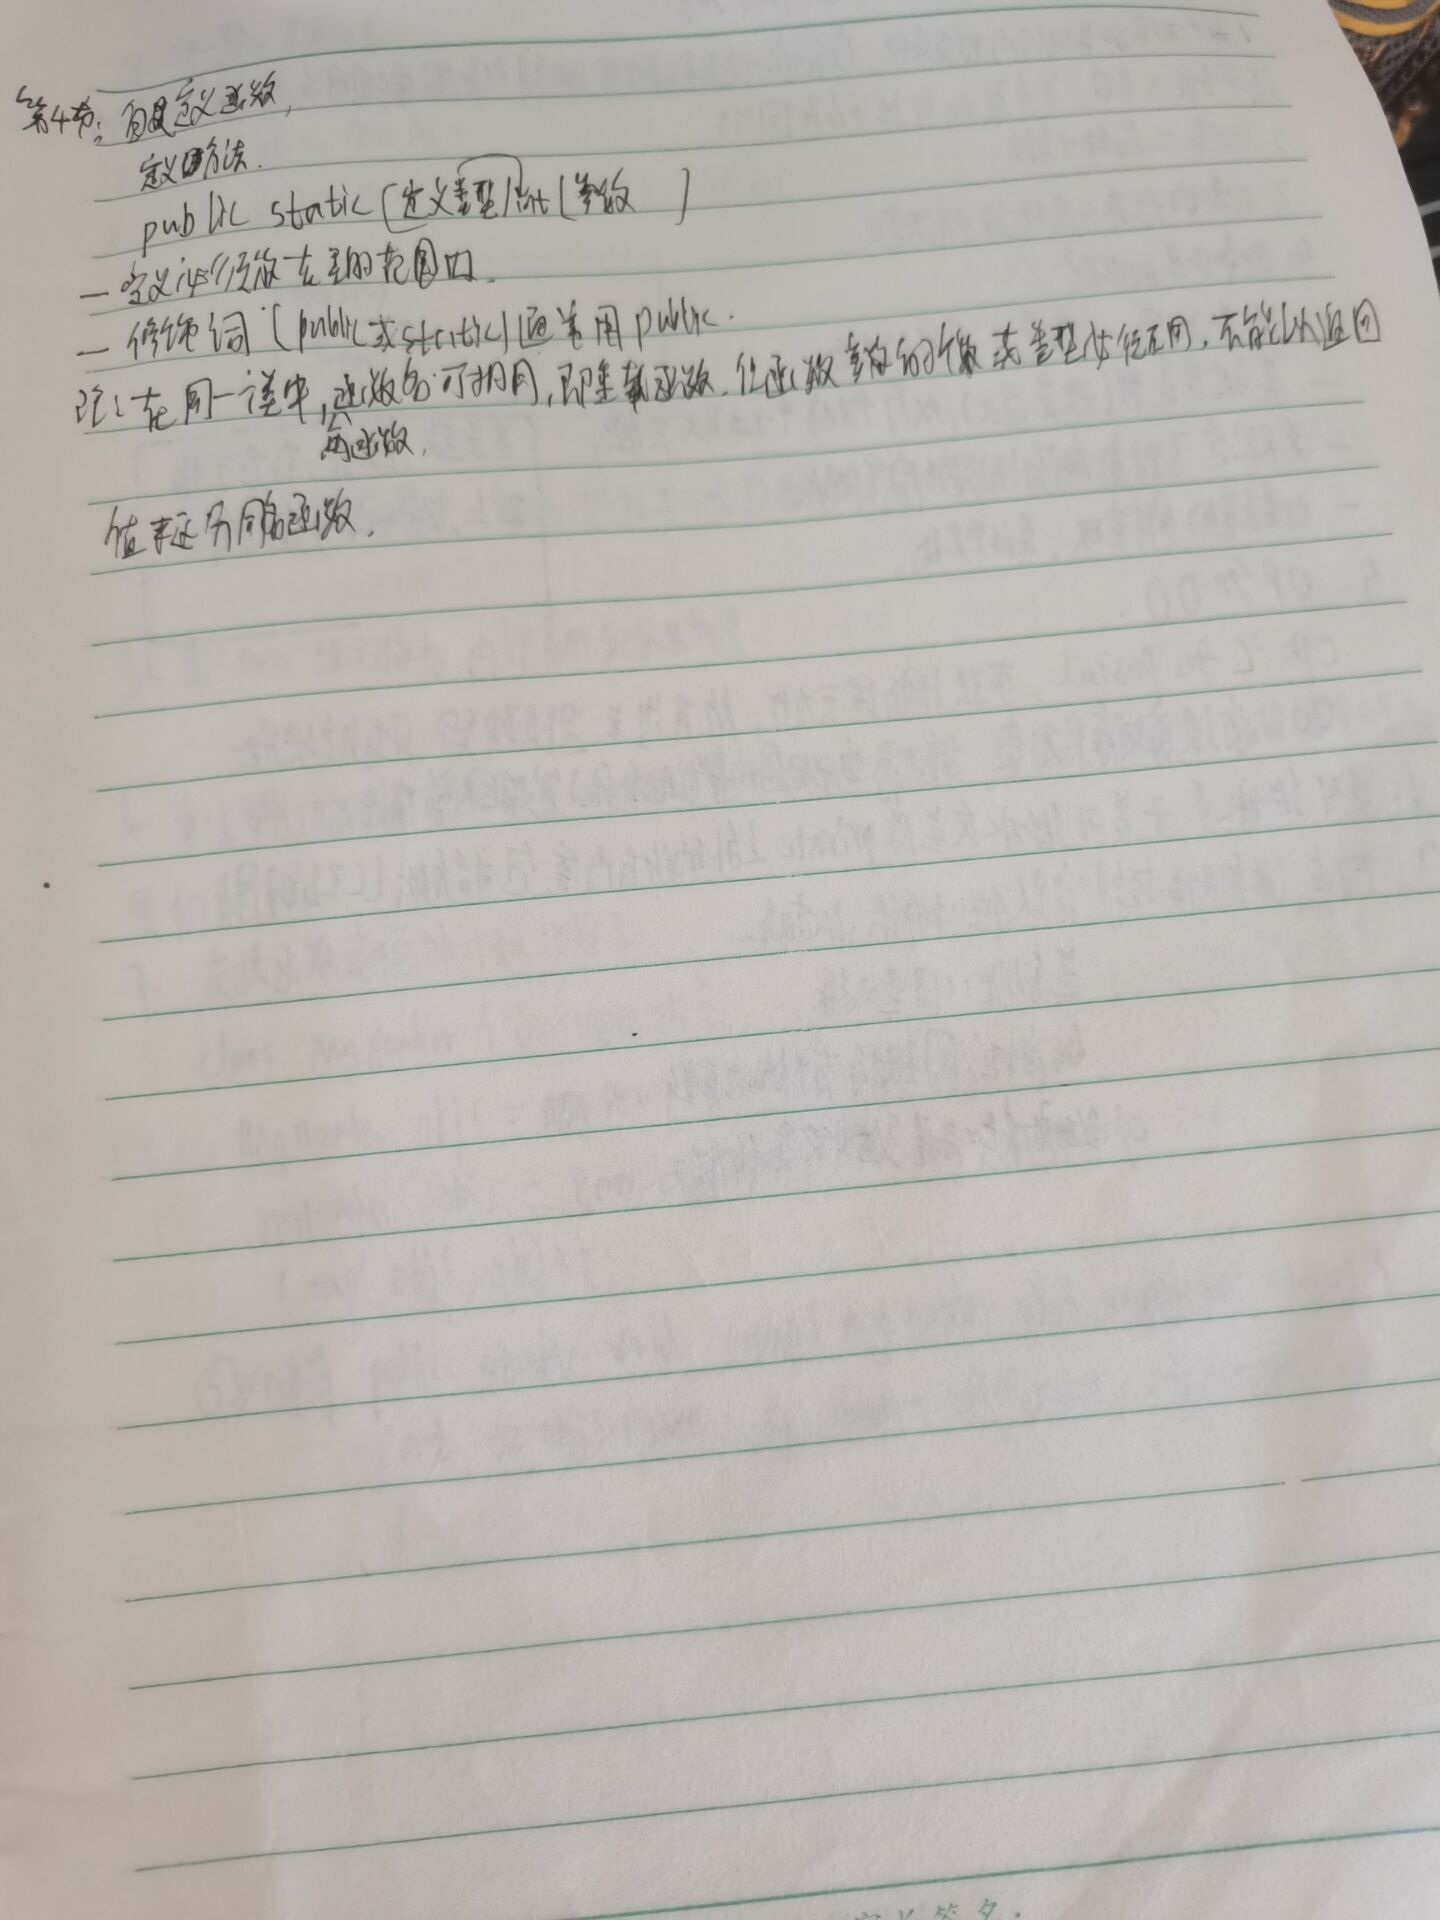 第4节：自定义函数，
定义方法.
public static (定义类型) int (参数 )
— 定义必须放在主的范围内.
— 修饰词 (public 或 static) 通常用 public.
注：在同一类中，函数名可相同，即重载函数. 但函数参数的个数或类型必须不同，不能以返回
函数.
值来区分同名函数.